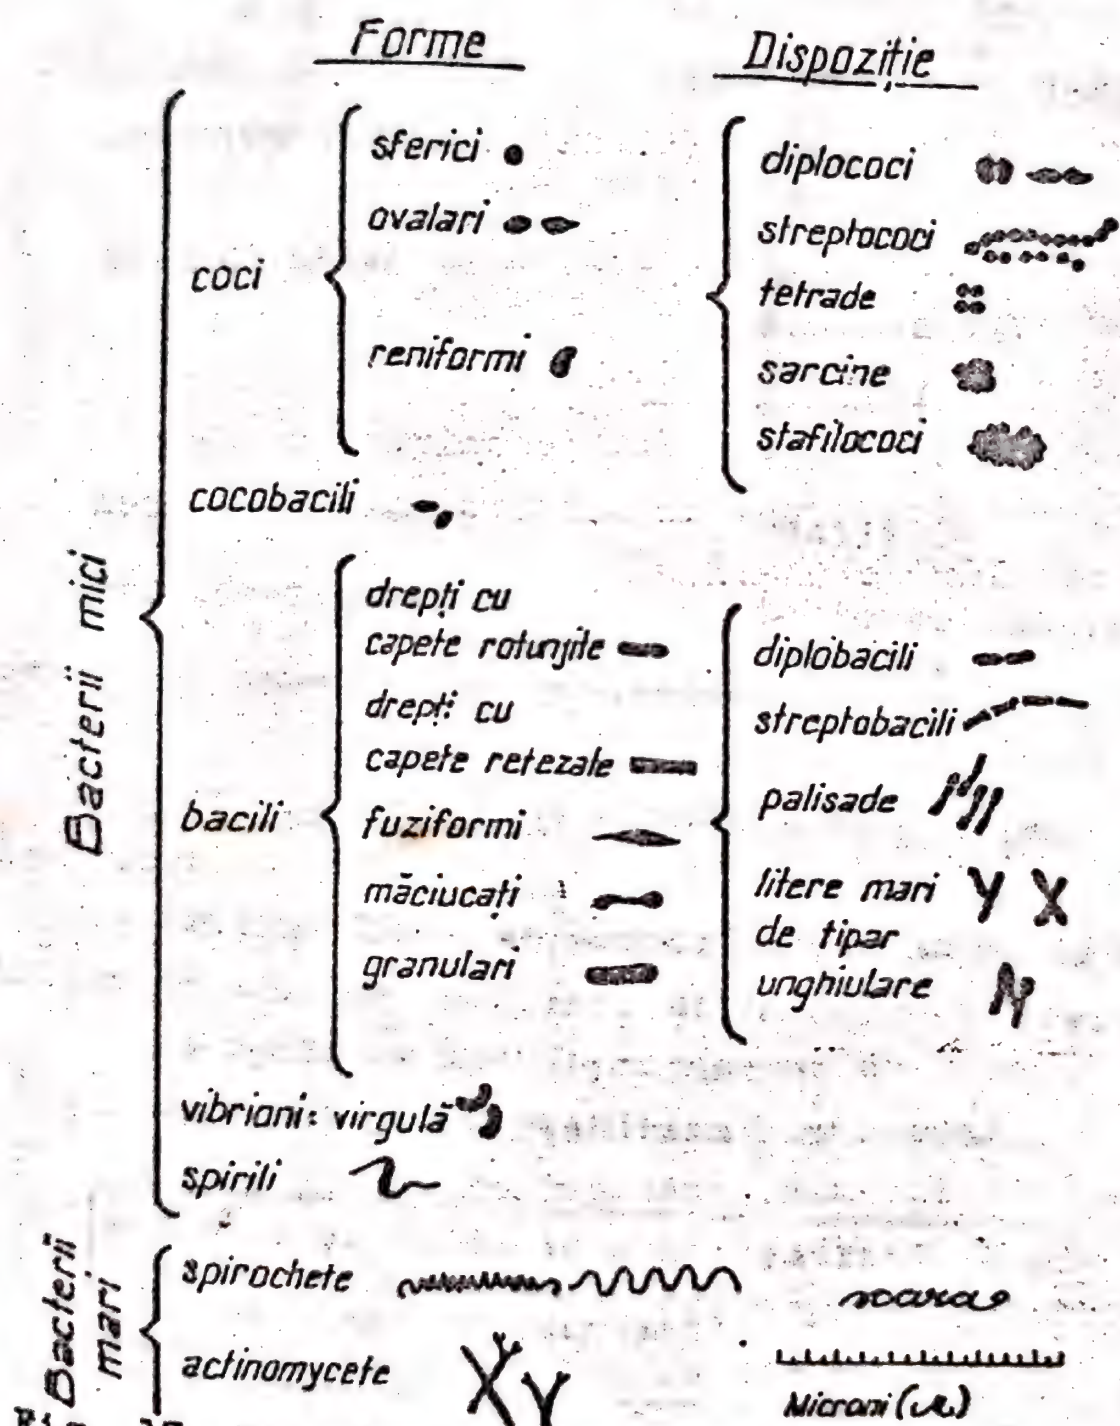 Forme
Dispoziție
Bacterii mici
coci
sferici
ovalari
reniformi
diplococi
streptococi
tetrade
sarcine
stafilococi
cocobacili
bacili
drepți cu
capete rotunjite
drepți cu
capete retezate
fuziformi
măciucați
granulari
diplobacili
streptobacili
palisade
litere mari
de tipar
unghiulare
vibrioni: virgulă
spirili
Bacterii
mari
spirochete
actinomycete
Microni (μ)